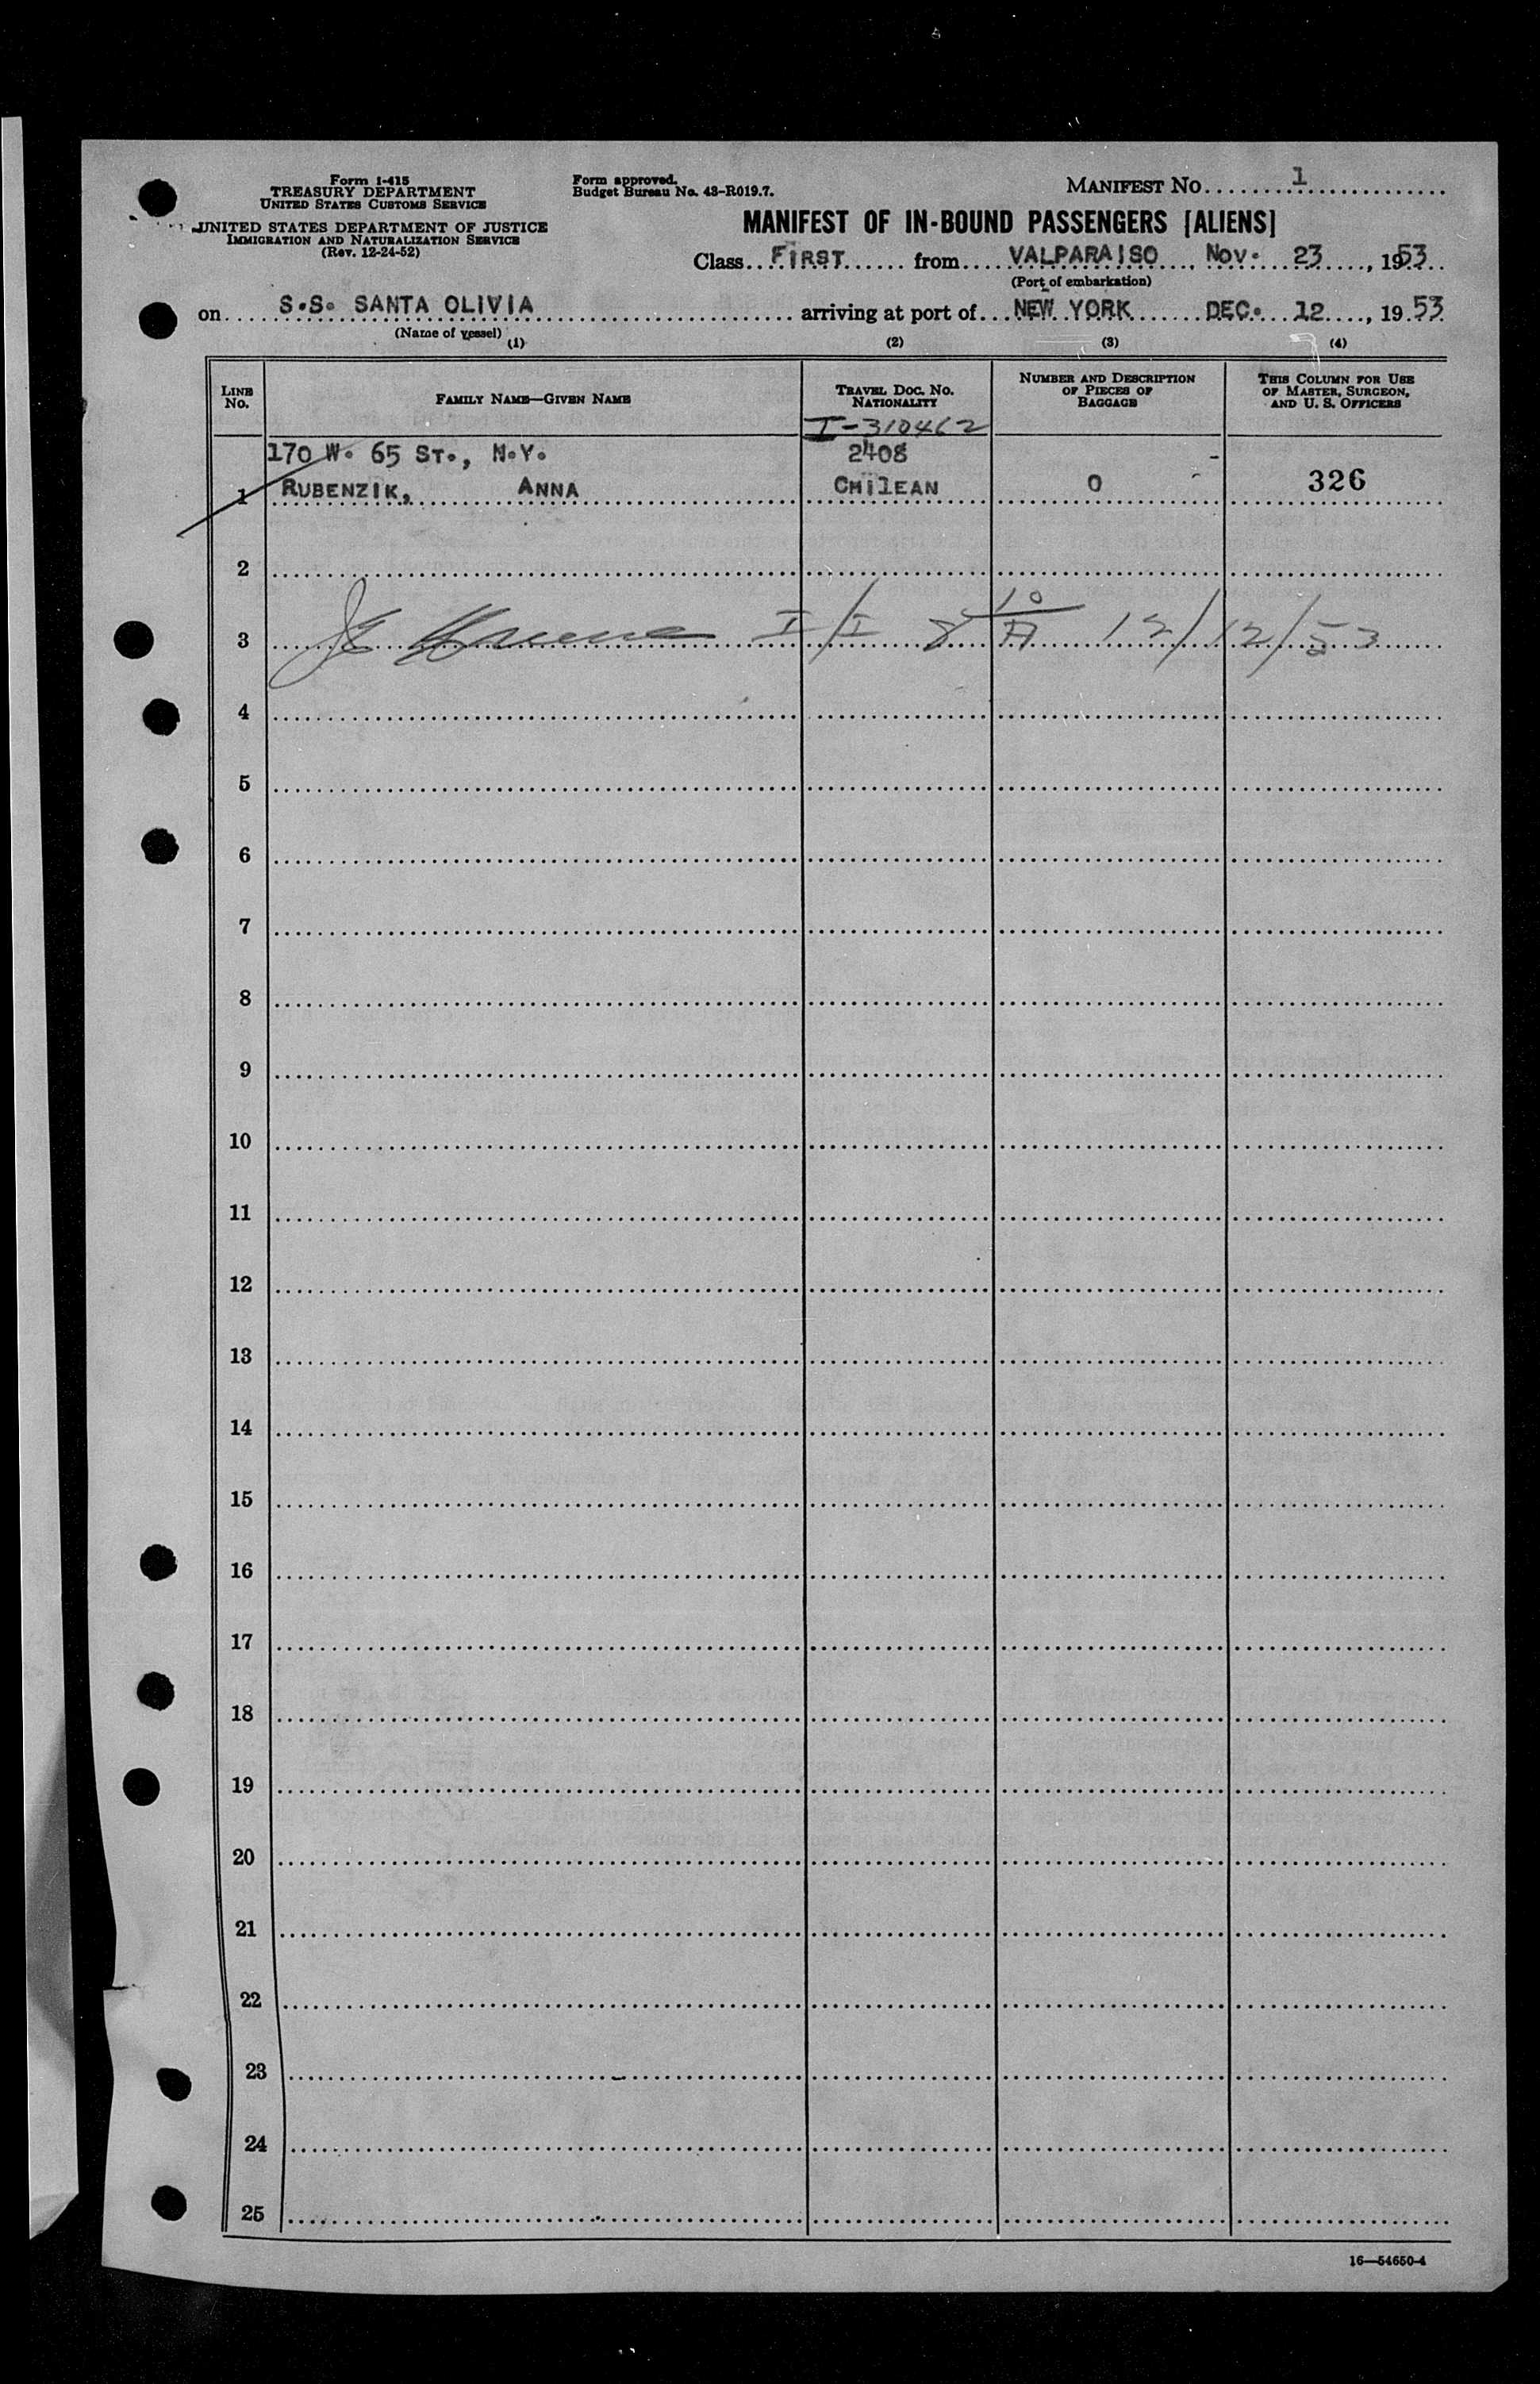 Form I-415
TREASURY DEPARTMENT
UNITED STATES CUSTOMS SERVICE
UNITED STATES DEPARTMENT OF JUSTICE
IMMIGRATION AND NATURALIZATION SERVICE
(Rev. 12-24-52)
Form approved.
Budget Bureau No. 43-R019.7.
MANIFEST NO. 1
MANIFEST OF IN-BOUND PASSENGERS [ALIENS]
Class FIRST from VALPARAISO, Nov. 23, 1953
(Port of embarkation)
on S.S. SANTA OLIVIA arriving at port of NEW YORK DEC. 12, 1953
(Name of vessel)
(1) (2) (3) (4)
LINE No. FAMILY NAME—GIVEN NAME TRAVEL DOC. NO. NATIONALITY NUMBER AND DESCRIPTION OF PIECES OF BAGGAGE THIS COLUMN FOR USE OF MASTER, SURGEON, AND U. S. OFFICERS
I-310462
170 W. 65 ST., N.Y. 2408 -
1 RUBENZIK, ANNA CHILEAN 0 326
2
3 I/I 8 10/A 12/12/53
4
5
6
7
8
9
10
11
12
13
14
15
16
17
18
19
20
21
22
23
24
25
16—54650-4